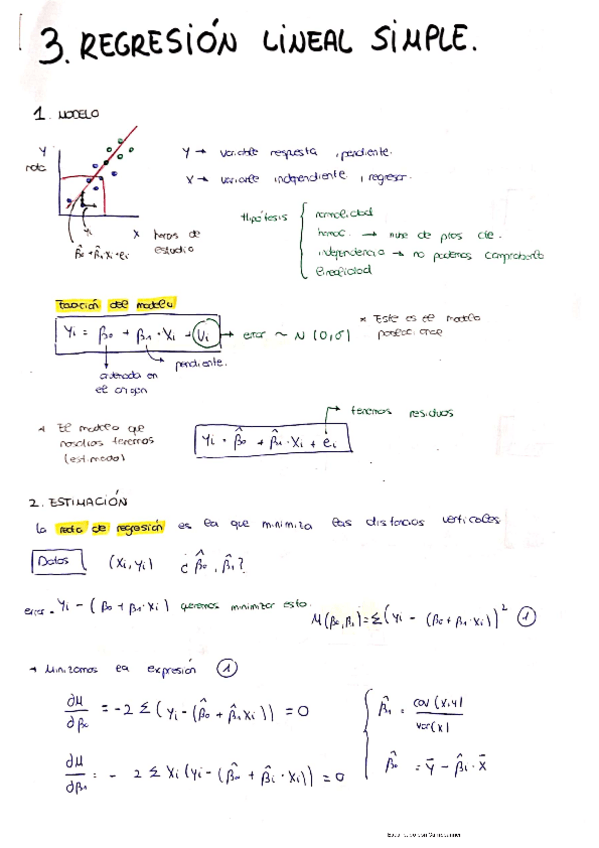 3. REGRESIÓN LINEAL SIMPLE.
1. MODELO
Y
nota
yi
X horas de estudio
β̂0 + β̂1 xi + ei
Y → variable respuesta, pendiente.
X → variable independiente, regresor.
Hipótesis
normalidad
homoc. → nube de ptos cte.
independencia → no podemos comprobarlo
linealidad
Ecuación del modelo
Yi = β0 + β1 · Xi + Ui → error ~ N (0,σ)
* Este es el modelo poblacional
pendiente.
ordenada en el origen
* El modelo que nosotros tenemos (estimado)
Yi = β̂0 + β̂1 · Xi + ei
tenemos residuos
2. ESTIMACIÓN
la recta de regresión es la que minimiza las distancias verticales
Datos (Xi, yi) ¿ β̂0, β̂1?
error = Yi - (β0 + β1 · Xi) queremos minimizar esto.
M(β0, β1) = Σ (Yi - (β0 + β1 · Xi))² ①
→ Minimizamos la expresión ①
∂M/∂β0 = -2 Σ (yi - (β̂0 + β̂1 Xi)) = 0
∂M/∂β1 = - 2 Σ Xi (yi - (β̂0 + β̂1 · Xi)) = 0
β̂1 = cov(x,y)/var(x)
β̂0 = Ȳ - β̂1 · X̄